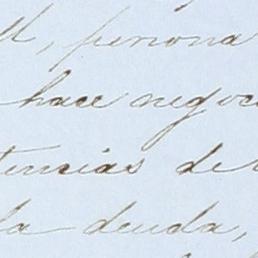 persona
hace negoc
tencias de
la deuda,